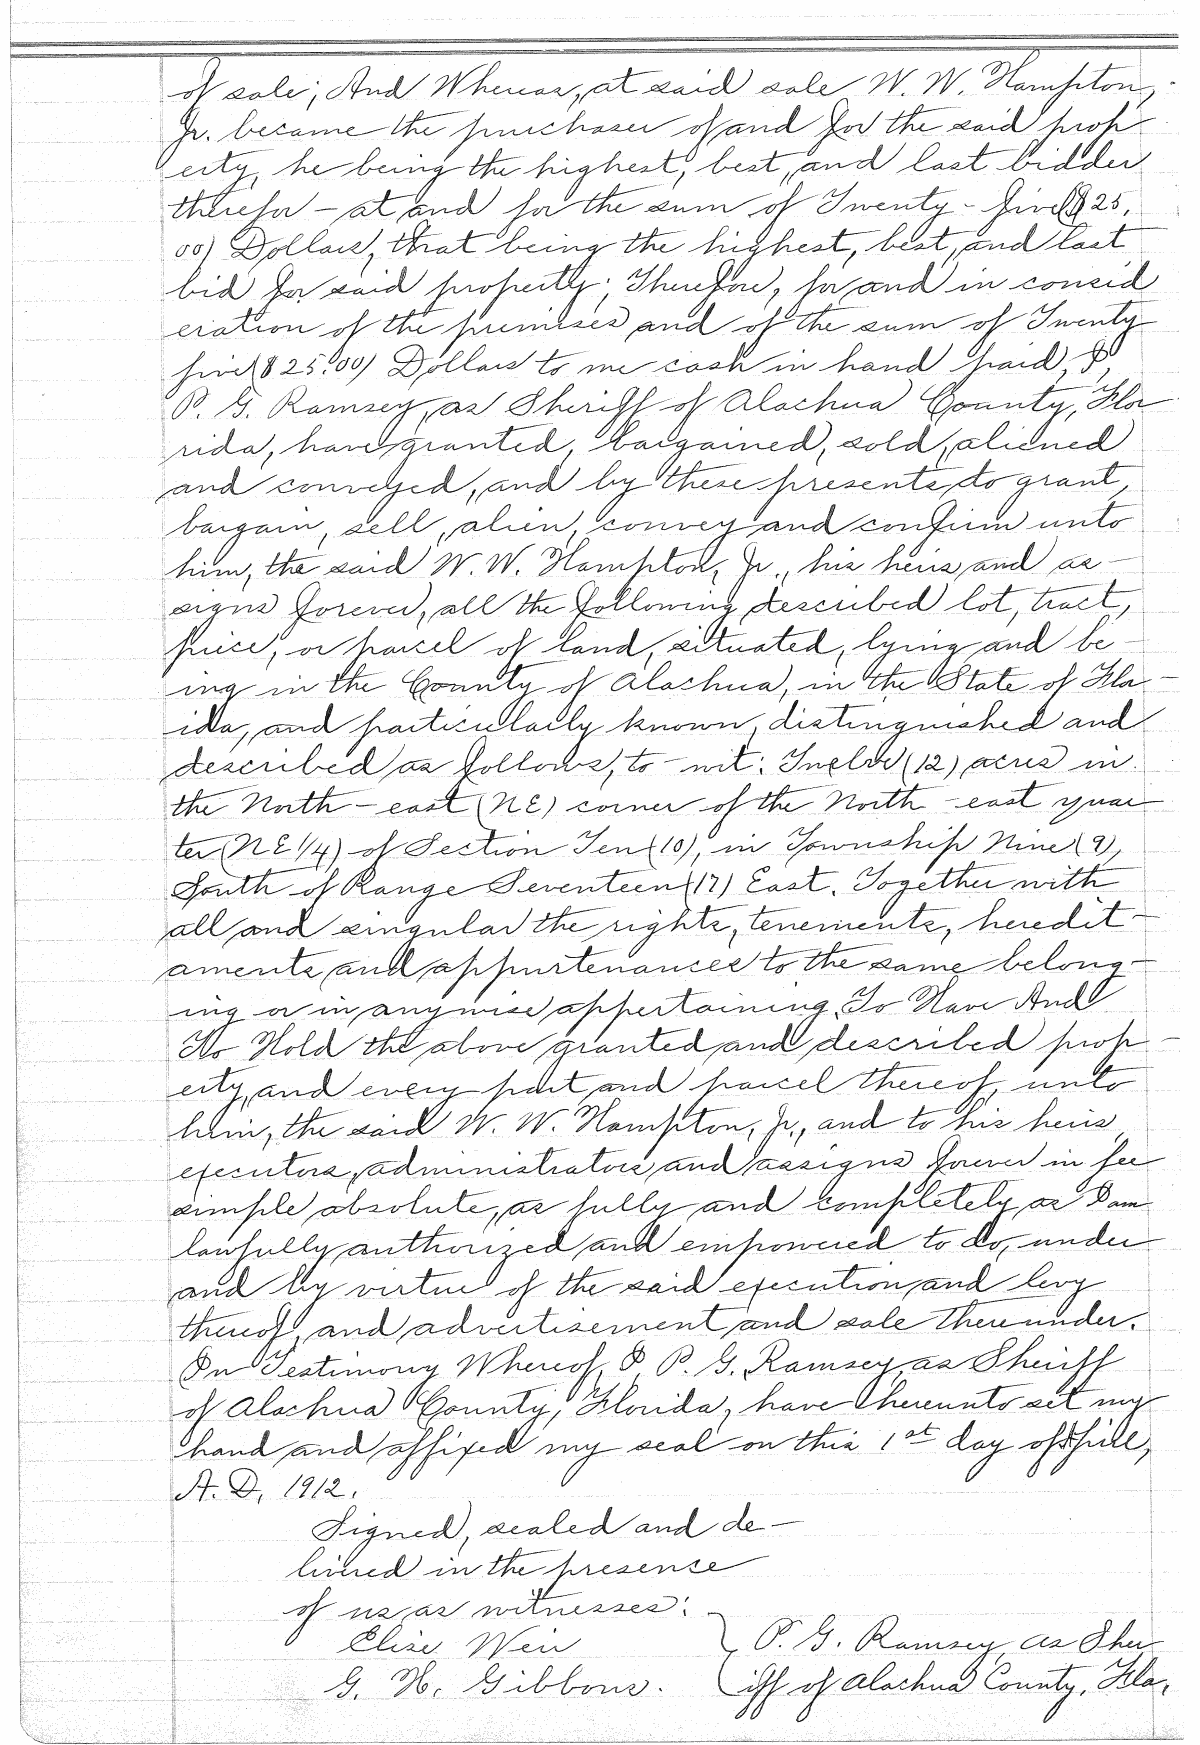 of sale; And Whereas, at said sale W. W. Hampton,
Jr. became the purchaser of and for the said prop
erty, he being the highest, best, and last bidder
therefor - at and for the sum of Twenty - five ($25.
00) Dollars, that being the highest, best, and last
bid for said property; Therefore, for and in consid
eration of the premises and of the sum of Twenty
five ($25.00) Dollars to me cash in hand paid, I,
P. G. Ramsey, as Sheriff of Alachua County, Flo
rida, have granted, bargained, sold, aliened
and conveyed, and by these presents do grant,
bargain, sell, alien, convey and confirm unto
him, the said W. W. Hampton, Jr., his heirs and as-
signs forever, all the following described lot, tract,
piece, or parcel of land, situated, lying and be
ing in the County of Alachua, in the State of Flo-
ida, and particularly known, distinguished and
described as follows, to - wit: Twelve (12) acres in
the North - east (NE) corner of the North - east quar
ter (NE 1/4) of Section Ten (10), in Township Nine (9),
South of Range Seventeen (17) East. Together with
all and singular the rights, tenements, heredit-
aments and appurtenances to the same belong-
ing or in anywise appertaining. To Have And
To Hold the above granted and described prop-
erty, and every part and parcel thereof, unto
him, the said W. W. Hampton, Jr., and to his heirs,
executors, administrators and assigns forever in fee
simple absolute, as fully and completely as I am
lawfully authorized and empowered to do, under
and by virtue of the said execution and levy
thereof, and advertisement and sale thereunder.
In Testimony Whereof, I P. G. Ramsey, as Sheriff
of Alachua County, Florida, have hereunto set my
hand and affixed my seal on this 1st day of April,
A. D. 1912.
Signed, sealed and de-
livered in the presence
of us as witnesses:
Elise Weir P. G. Ramsey, as Sher
G. H. Gibbons. iff of Alachua County, Fla.